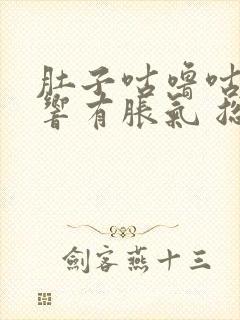 肚子咕嚕咕
響有脹氣
劍客燕十三